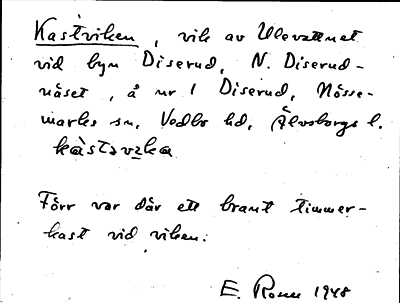 Kastviken, vik av Ulevattnet
vid byn Diserud, N. Diserud-
näset, å nr 1 Diserud, Nösse-
marks sn, Vedbo hd, Älvsborgs l.
kàstəvɪka
Förr var där ett brant timmer-
kast vid viken.
E. Rosen 1948